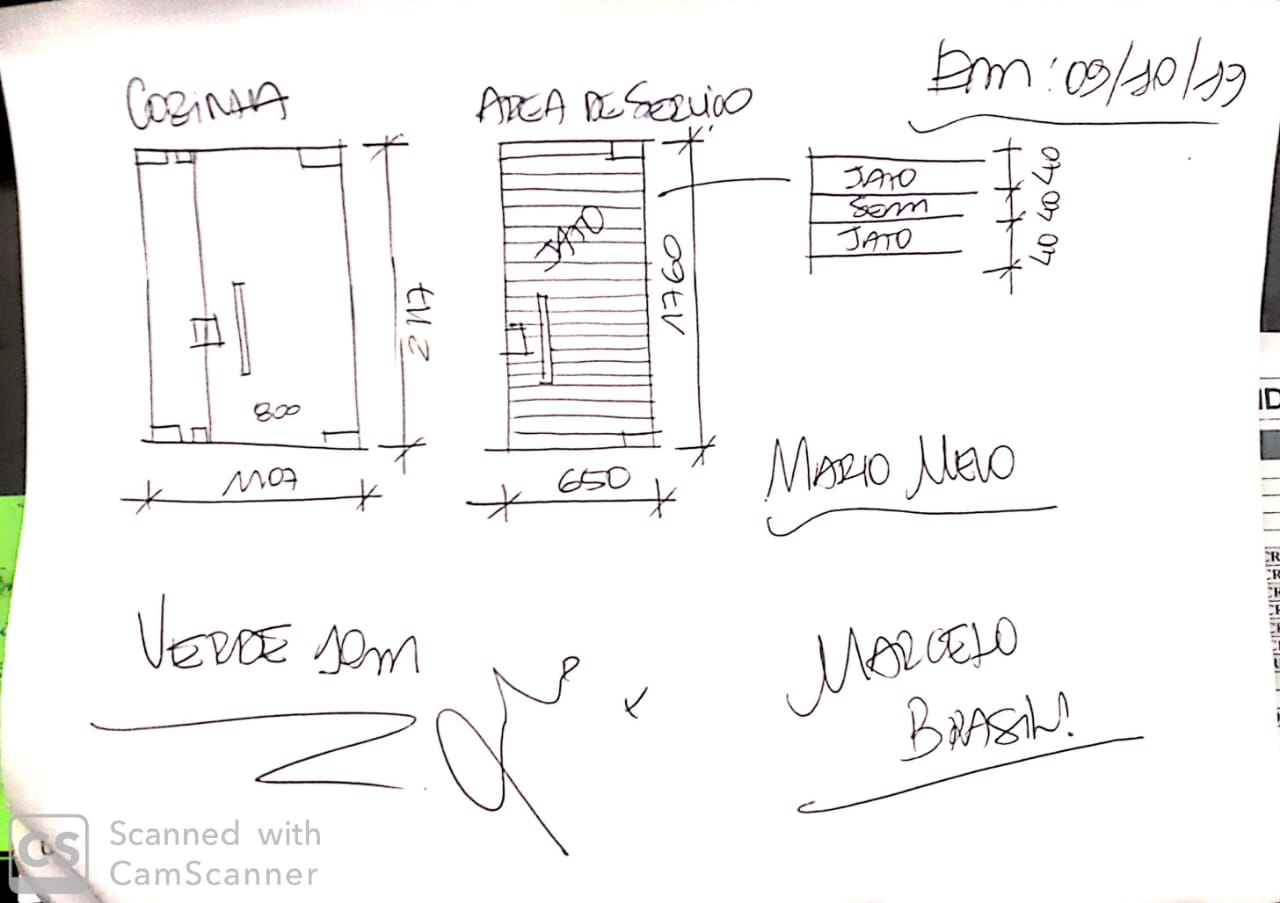 Em: 09/10/19
COZINHA
AREA DE SERVIÇO
JATO
SEM
JATO
40
40
40
JATO
2117
1760
800
1107
650
MARIO MELO
VERDE 10m
MARCELO
BRASIL!
CS
Scanned with
CamScanner
ID